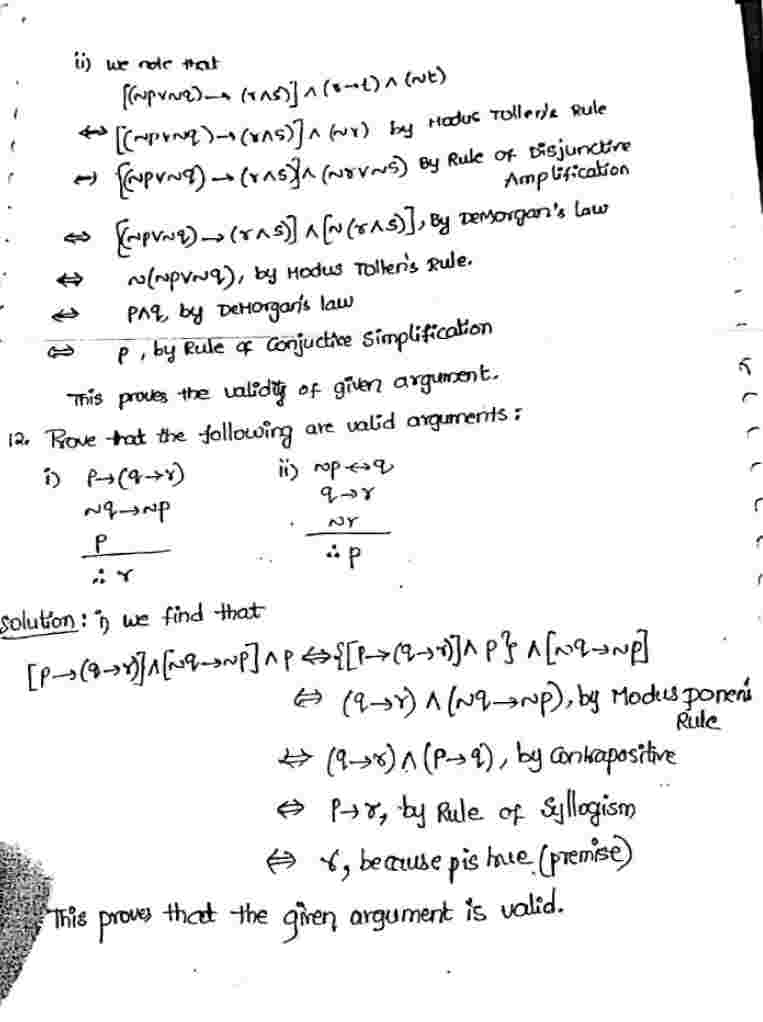 ii) we note that
[(~p∨~q)→ (r∧s)] ∧ (r→t) ∧ (~t)
⇔ [(~p∨~q)→(r∧s)] ∧ (~r) by Modus Tollen's Rule
⇔ [(~p∨~q)→(r∧s)]∧(~r∨~s) By Rule of Disjunctive
Amplification
⇔ [(~p∨~q)→(r∧s)] ∧ [~(r∧s)], By DeMorgan's law
⇔ ~(~p∨~q), by Modus Tollen's Rule.
⇔ p∧q, by DeMorgan's law
⇔ p, by Rule of Conjuctive Simplification
This proves the validity of given argument.
12. Prove that the following are valid arguments:
i) p→(q→r) ii) ~p↔q
~q→~p q→r
p ~r
∴ r ∴ p
Solution: i) we find that
[p→(q→r)]∧[~q→~p]∧p ⇔{[p→(q→r)]∧p} ∧[~q→~p]
⇔ (q→r) ∧ (~q→~p), by Modus ponens
Rule
⇔ (q→r)∧(p→q), by Contrapositive
⇔ p→r, by Rule of Syllogism
⇔ r, because p is true (premise)
This proves that the given argument is valid.